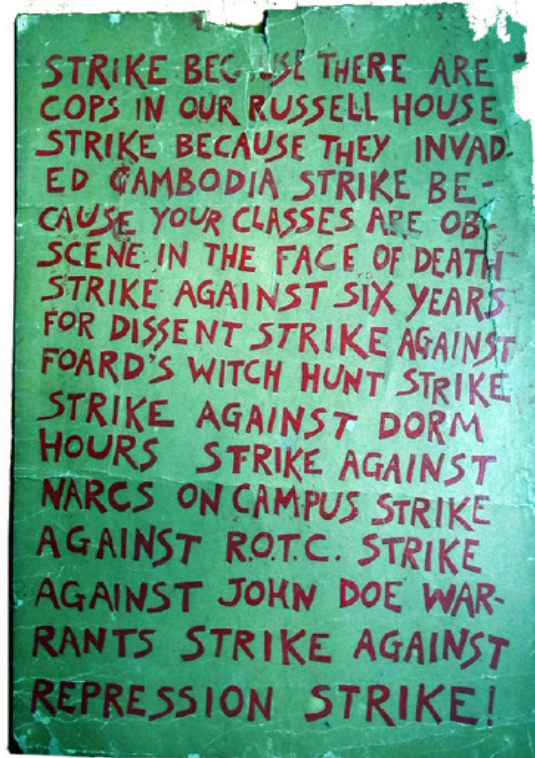 STRIKE BECAUSE THERE ARE
COPS IN OUR RUSSELL HOUSE
STRIKE BECAUSE THEY INVAD-
ED CAMBODIA STRIKE BE-
CAUSE YOUR CLASSES ARE OB-
SCENE IN THE FACE OF DEATH
STRIKE AGAINST SIX YEARS
FOR DISSENT STRIKE AGAINST
FOARD'S WITCH HUNT STRIKE
STRIKE AGAINST DORM
HOURS STRIKE AGAINST
NARCS ON CAMPUS STRIKE
AGAINST R.O.T.C. STRIKE
AGAINST JOHN DOE WAR-
RANTS STRIKE AGAINST
REPRESSION STRIKE!